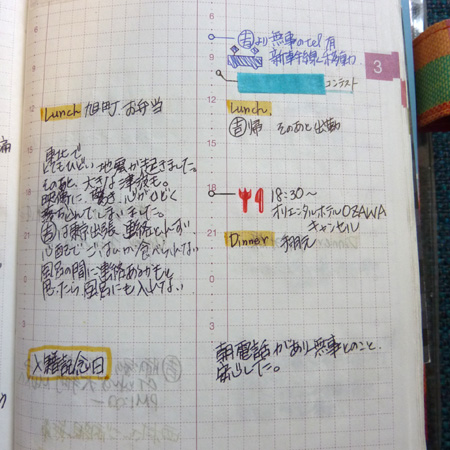 Lunch 旭町 お弁当
東北で
とてもひどい地震が起きました。
そのあと、大きな津波も。
映像に、驚き、心がひどく
落ちこんでしまいました。
㊎は東京出張、連絡とれず
心配でごはんが食べられない
風呂の間に連絡あるかもと
思ったら風呂にも入れない
入籍記念日
より無事のtel有
3
コンテスト
Lunch
帰 そのあと出勤
18:30～
オリエンタルホテルOZAWA
キャンセル
Dinner
朝電話があり無事とのこと、
安心した。